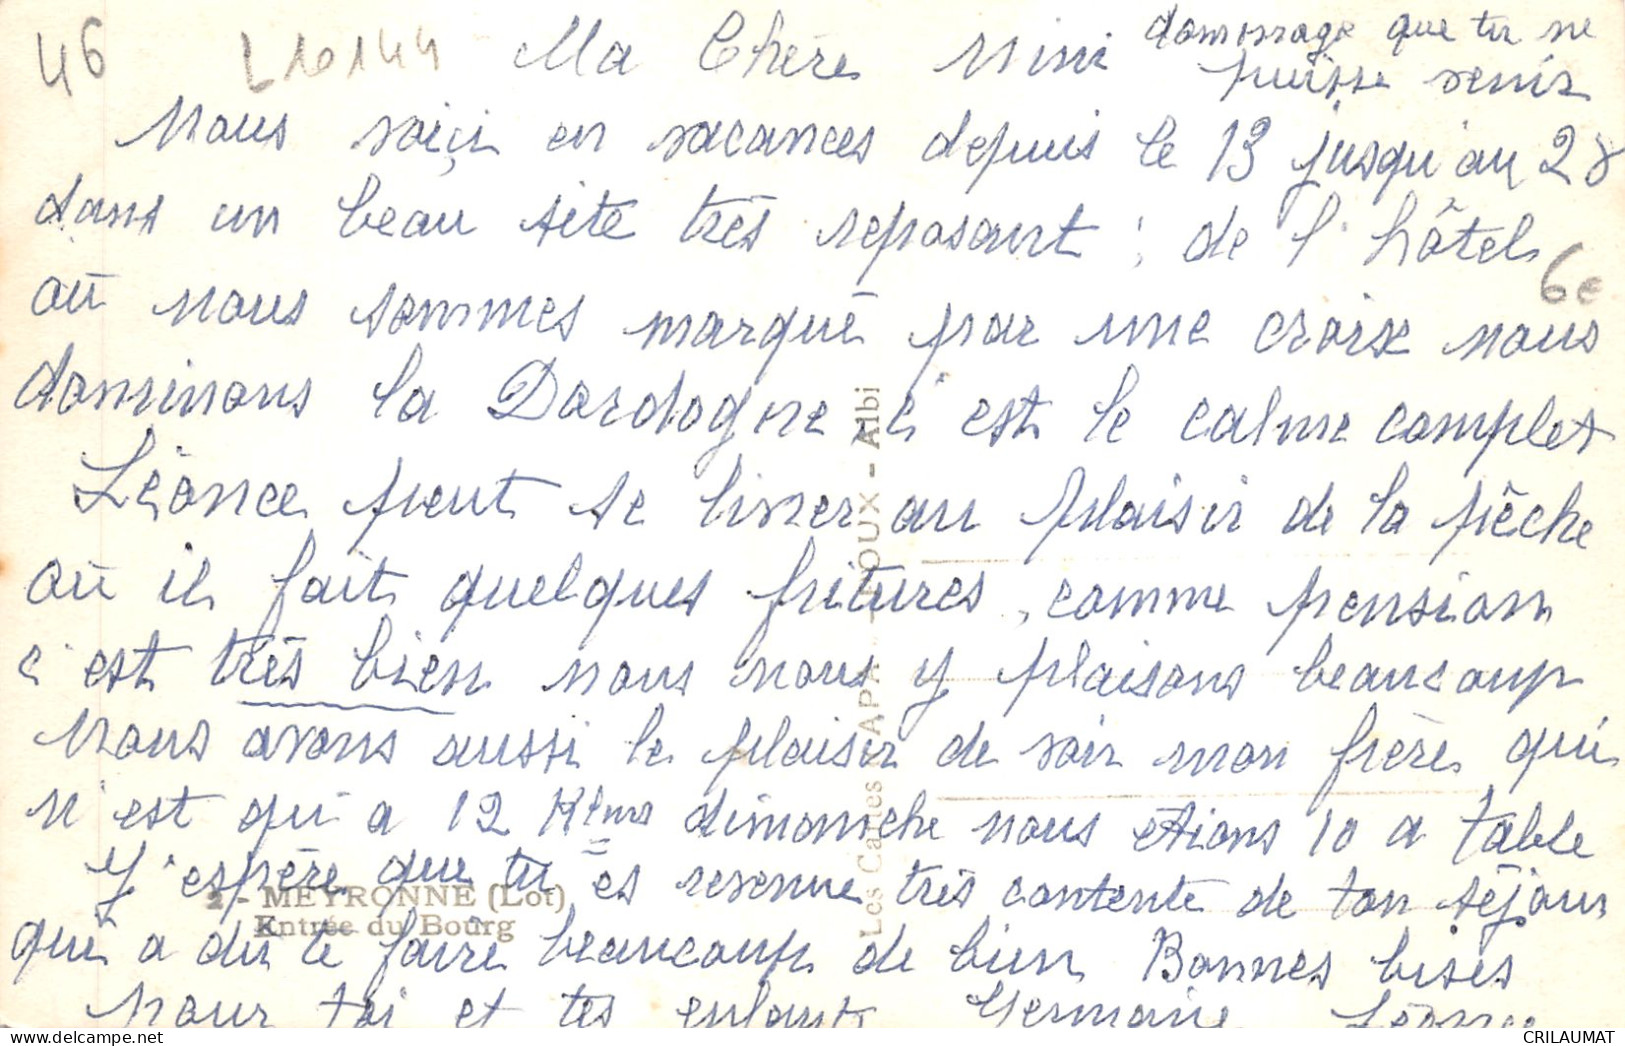 46 L10144 Ma Chère Mini dommage que tu ne
puisse venir
Nous voiçi en vacances depuis le 13 jusqu'au 28
dans un beau site très reposant ; de l'hôtel
6e
où nous sommes marqué par une croix nous
dominons la Dordogne c'est le calme complet
Léonce peut se livrer au plaisir de la pêche
où il fait quelques fritures, comme pension
c'est très bien nous nous y plaisons beaucoup
Nous avons aussi le plaisir de voir mon frère qui
n'est qu'a 12 Klms dimanche nous étions 10 a table
J'espère que tu es revenue très contente de ton séjour
qui a du te faire beaucoup de bien Bonnes bises
pour toi et tes enfants Germaine Léonce
2 - MEYRONNE (Lot)
Entrée du Bourg
Les Cartes APA - POUX - Albi
CRILAUMAT